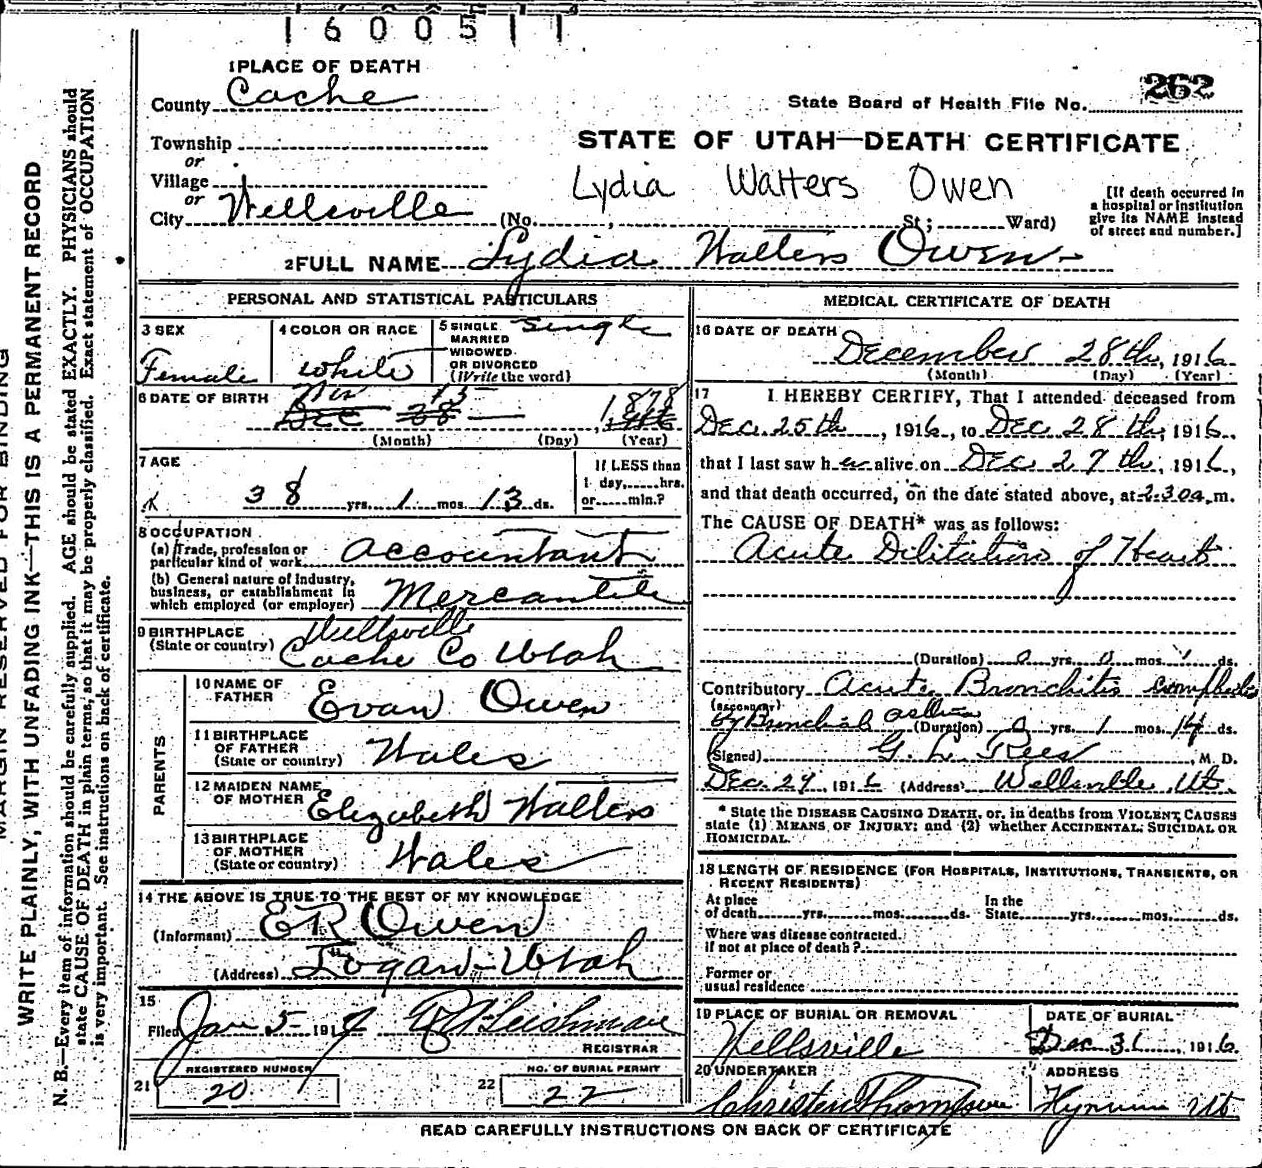 1600511
1 PLACE OF DEATH
County Cache
State Board of Health File No. 262
Township
or
Village
or
City Wellsville
STATE OF UTAH—DEATH CERTIFICATE
Lydia Walters Owen
(No. , St; Ward)
[If death occurred in
a hospital or institution
give its NAME instead
of street and number.]
2 FULL NAME Lydia Walters Owen
PERSONAL AND STATISTICAL PARTICULARS
3 SEX
Female
4 COLOR OR RACE
white
5 SINGLE
MARRIED
WIDOWED
OR DIVORCED
(Write the word)
Single
6 DATE OF BIRTH
Nov 15 1878
Dec 28
(Month) (Day) (Year)
7 AGE
38 yrs. 1 mos. 13 ds.
If LESS than
1 day, hrs.
or min.?
8 OCCUPATION
(a) Trade, profession or
particular kind of work Accountant
(b) General nature of industry,
business, or establishment in
which employed (or employer) Mercantile
9 BIRTHPLACE
(State or country)
Wellsville
Cache Co Utah
PARENTS
10 NAME OF
FATHER
Evan Owen
11 BIRTHPLACE
OF FATHER
(State or country)
Wales
12 MAIDEN NAME
OF MOTHER
Elizabeth Walters
13 BIRTHPLACE
OF MOTHER
(State or country)
Wales
14 THE ABOVE IS TRUE TO THE BEST OF MY KNOWLEDGE
(Informant) E R Owen
(Address) Logan Utah
15
Filed Jan 5 1917 Leishman
REGISTRAR
21
REGISTERED NUMBER
20
22
NO. OF BURIAL PERMIT
22
MEDICAL CERTIFICATE OF DEATH
16 DATE OF DEATH
December 28th, 1916
(Month) (Day) (Year)
17 I HEREBY CERTIFY, That I attended deceased from
Dec. 25th, 1916, to Dec 28th, 1916,
that I last saw her alive on Dec 27th, 1916,
and that death occurred, on the date stated above, at 2.30a.m.
The CAUSE OF DEATH* was as follows:
Acute Dilitation of Heart
(Duration) 0 yrs. 0 mos. 1 ds.
Contributory Acute Bronchitis
(SECONDARY)
by Bronchial asthma
(Duration) 0 yrs. 1 mos. 14 ds.
(Signed) G. L. Rees, M. D.
Dec. 29 1916 (Address) Wellsville Ut.
* State the DISEASE CAUSING DEATH, or, in deaths from VIOLENT CAUSES
state (1) MEANS OF INJURY; and (2) whether ACCIDENTAL, SUICIDAL OR
HOMICIDAL.
18 LENGTH OF RESIDENCE (FOR HOSPITALS, INSTITUTIONS, TRANSIENTS, OR
RECENT RESIDENTS)
At place
of death yrs. mos. ds.
In the
State yrs. mos. ds.
Where was disease contracted.
if not at place of death?
Former or
usual residence
19 PLACE OF BURIAL OR REMOVAL
Wellsville
DATE OF BURIAL
Dec 31, 1916
20 UNDERTAKER
Christen
ADDRESS
Hyrum Ut
READ CAREFULLY INSTRUCTIONS ON BACK OF CERTIFICATE
MARGIN RESERVED FOR BINDING
WRITE PLAINLY, WITH UNFADING INK—THIS IS A PERMANENT RECORD
N. B.—Every item of information should be carefully supplied. AGE should be stated EXACTLY. PHYSICIANS should
state CAUSE OF DEATH in plain terms, so that it may be properly classified. Exact statement of OCCUPATION
is very important. See instructions on back of certificate.